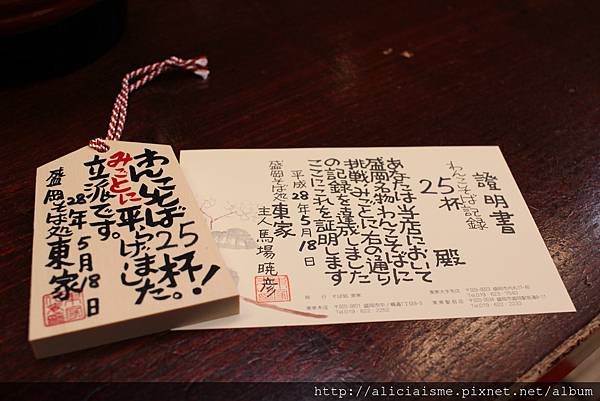 わんこそば25杯!
みごとに平らげました。
立派です。
28年5月18日
盛岡そば処 東家
證明書
わんこそば記録
25杯
殿
あなたは当店において
盛岡名物わんこそばに
挑戦みごと右の通り
の記録を達成しました
ここにこれを証明します
平成28年5月18日
盛岡そば処 東家
主人 馬場暁彦
http://aliciaisme.pixnet.net/album